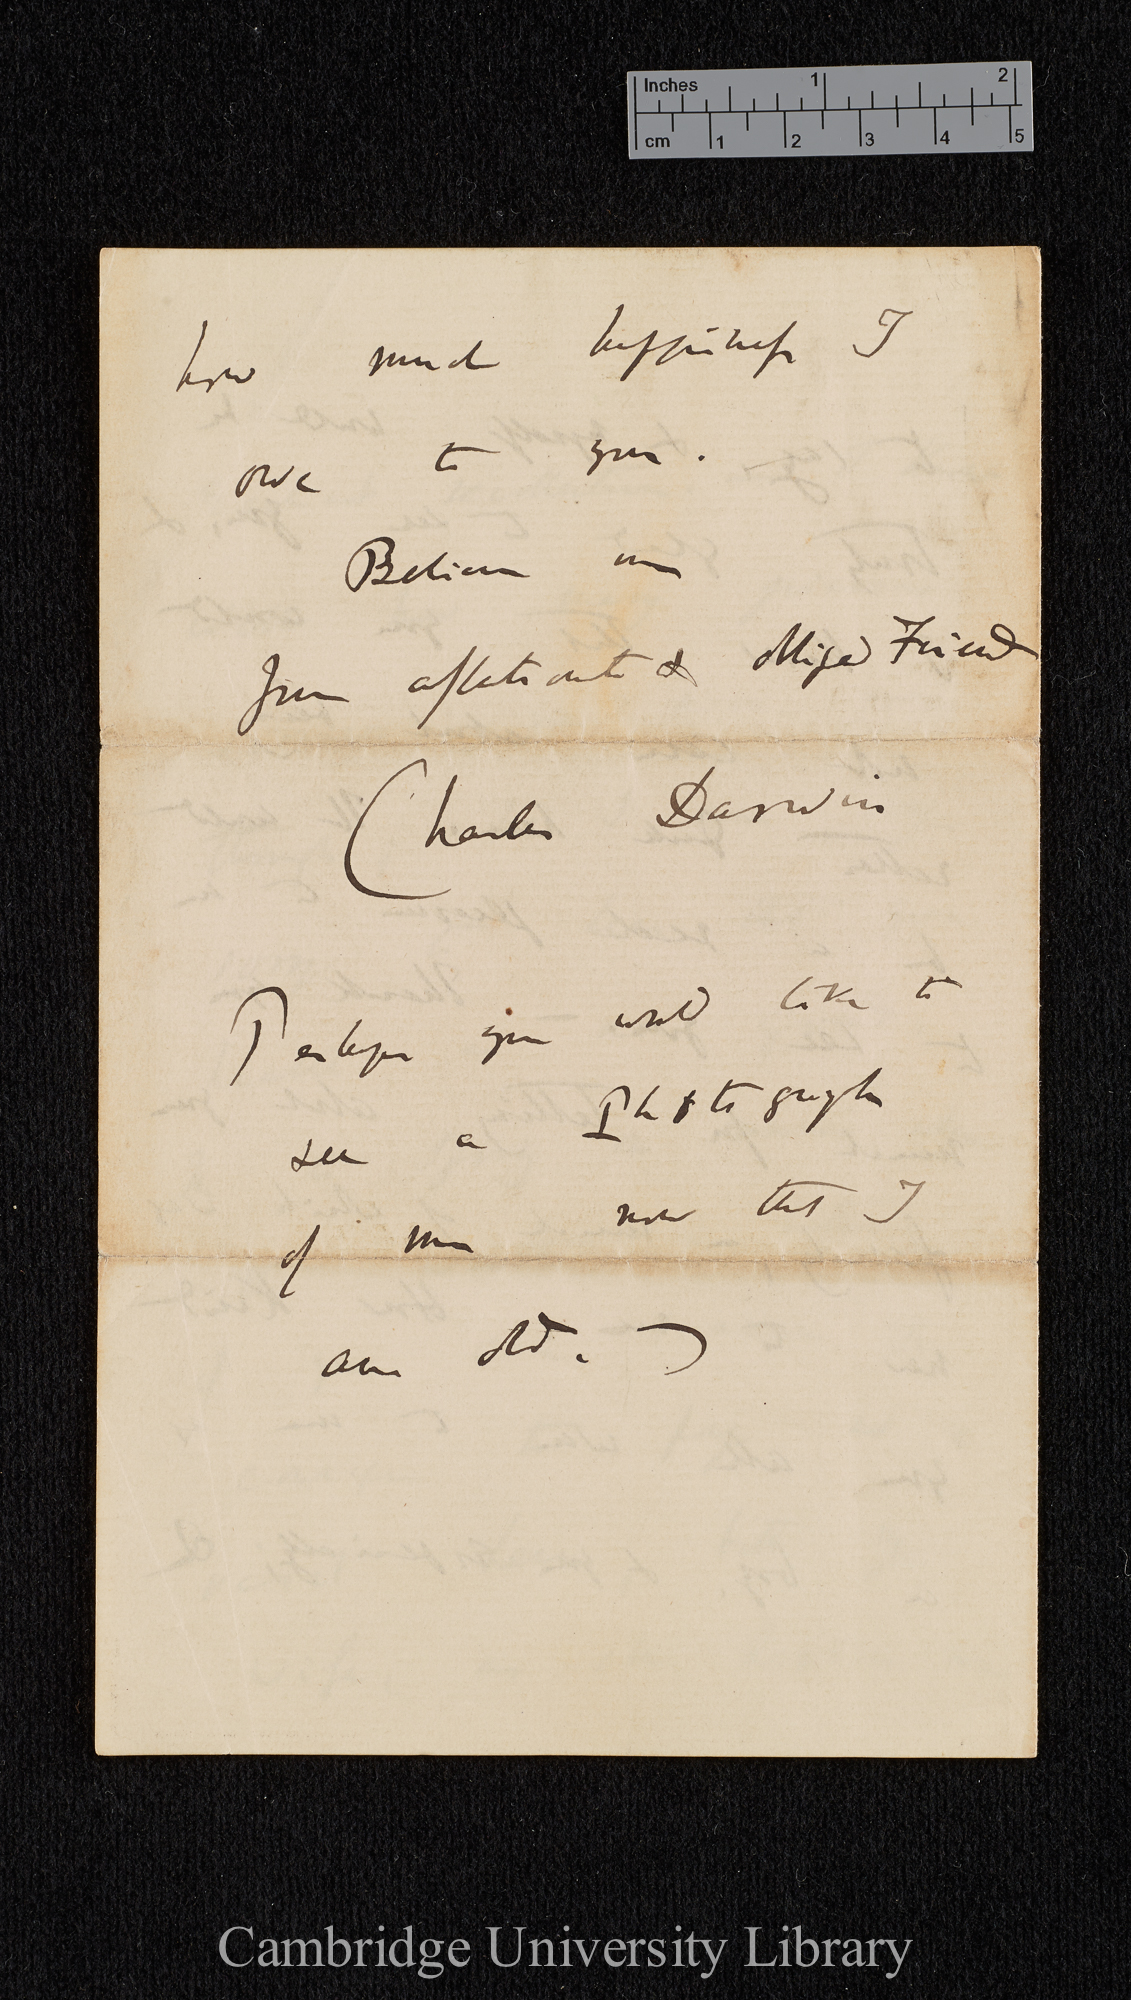 Inches 1 2
cm 1 2 3 4 5
how much happiness I
owe to you.
Believe me
Your affectionate & obliged Friend
Charles Darwin
Perhaps you would like to
see a Photograph
of me now that I
am old.
Cambridge University Library